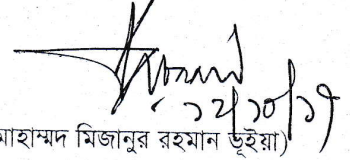 ১২/১০/১৭
মোহাম্মদ মিজানুর রহমান ভূঁইয়া)